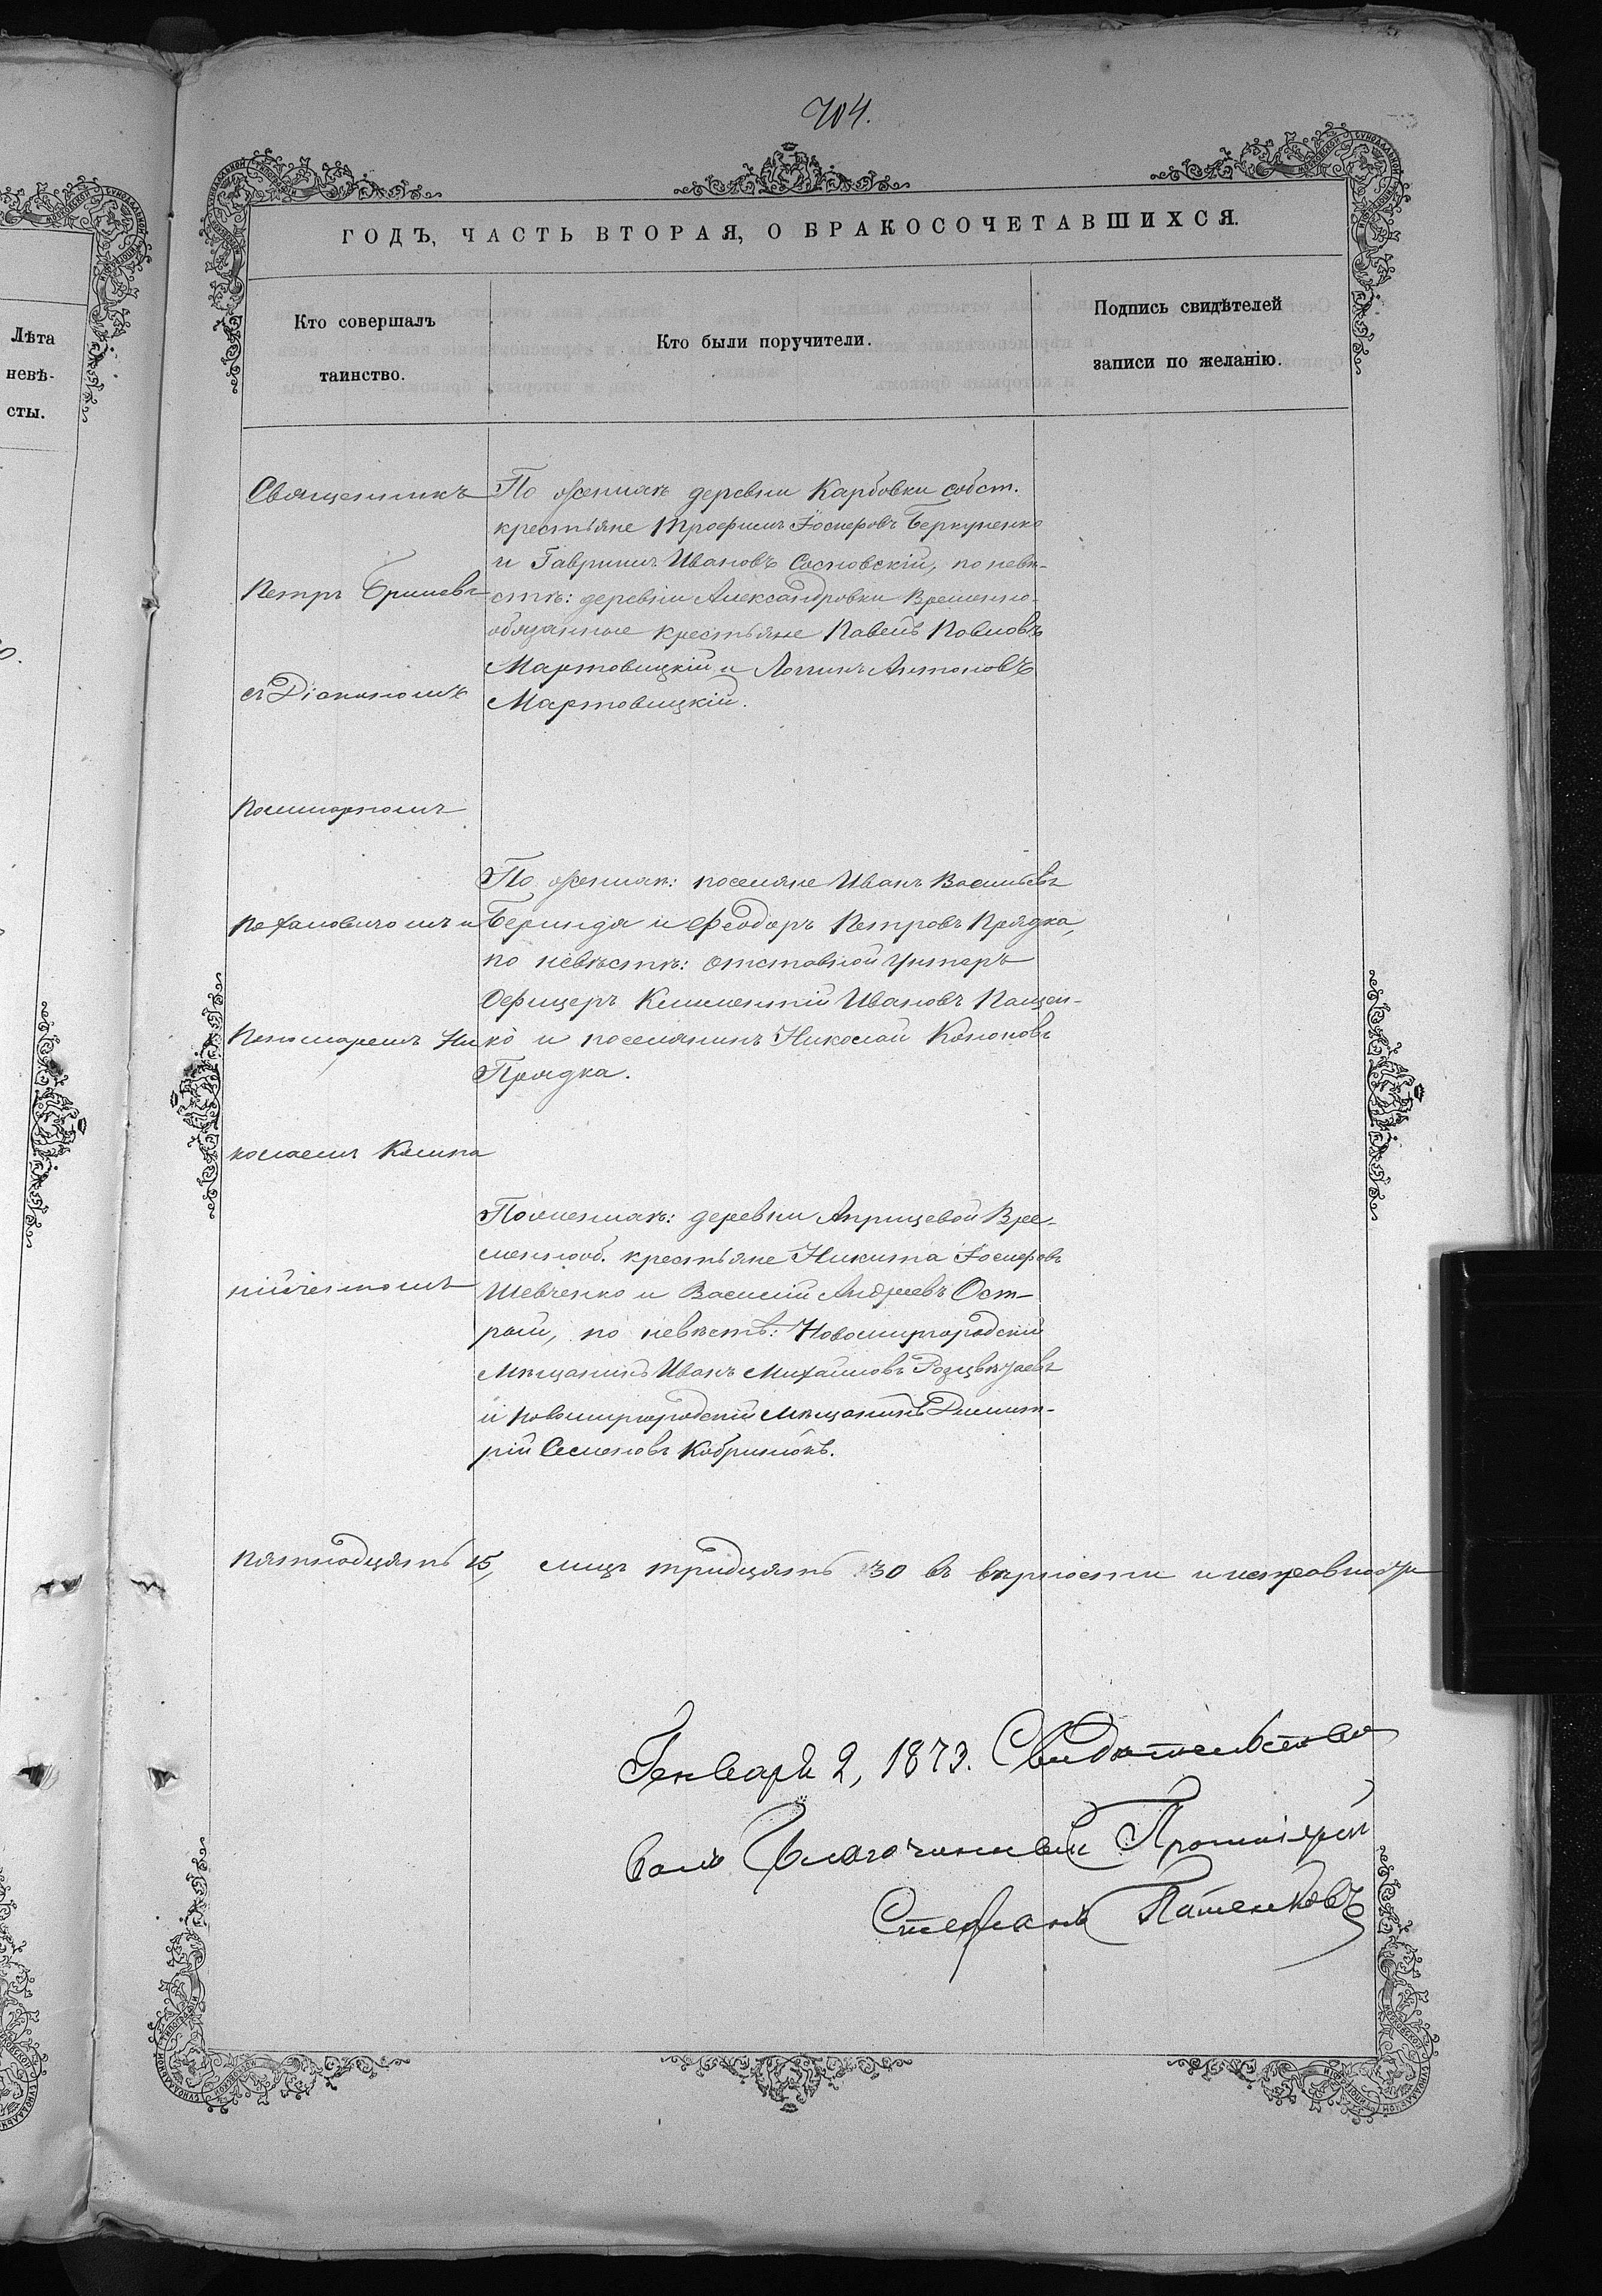 704.
ГОДЪ, ЧАСТЬ ВТОРАЯ, О БРАКОСОЧЕТАВШИХСЯ.
Лѣта
невѣ-
сты.
Кто совершалъ
таинство.
Кто были поручители.
Подпись свидѣтелей
записи по желанію.
Священникъ
Петръ
съ Діакономъ
и
Пономаремъ Ни
колаемъ
По женихѣ деревни Карбовки собст.
крестьяне Трофимъ Іосифовъ Беркуненко
и Гавриилъ Ивановъ Сосновскій, по невѣ-
стѣ: деревни Александровки Временно-
обязанные крестьяне Павелъ Павловъ
Мартовицкій и Логинъ Антоновъ
Мартовицкій.
По женихѣ: поселяне Иванъ Васильевъ
Беринда и Феодоръ Петровъ Прядка,
по невѣстѣ: отставной Унтеръ
Офицеръ Климентій Ивановъ Пащен-
ко и поселянинъ Николай Кононовъ
Прядка.
По женихѣ: деревни Априцевой Вре-
меннооб. крестьяне Никита Іосифовъ
Шевченко и Василій Андреевъ Ост-
рый, по невѣстѣ: Новомиргородскій
Мѣщанинъ Иванъ Михайловъ
и Новомиргородскій Мѣщанинъ Димит-
рій Семеновъ
пятнадцать 15, лицъ тридцать 30 въ вѣрности и исправности
Генваря 2, 1873. Свидѣтельство
валъ Благочинный Протоіерей
Стефанъ